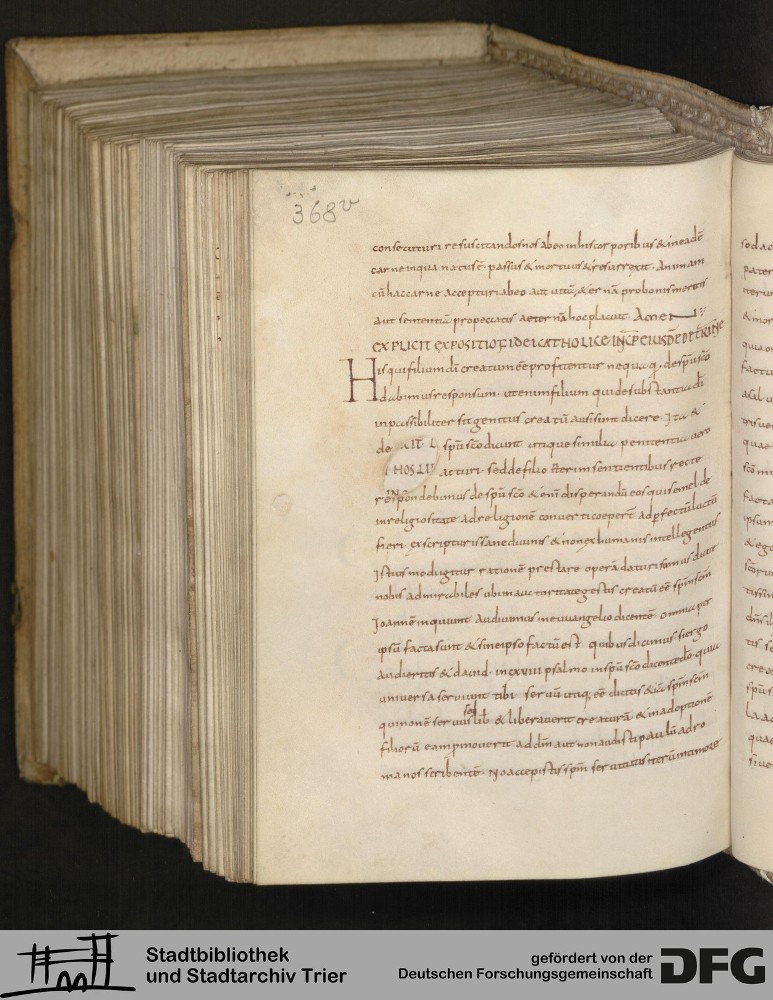 368v
consecuturi resuscitandos nos ab eo in his corporibus & in eadē
carne in qua natus ē · passus & mortuus & resurrexit · Animam
cū hac carne accepturi ab eo aut uitā & ernā pro bonis meritis
aut sententiā pro peccatis aeternā hoc placuit · Amen
EXPLICIT EXPOSITIO FIDEI CATHOLICE INCP EIUSDĒ
His qui filium dī creatum ēē profitentur · de spū scō
dabimus responsum · utenim filium qui de substantia dī
inpassibiliter sit genitus creatū ausi sunt dicere · Ita &
de spū scō dicunt utique simul a penitentia uero
HOS LU acturi · sed de filio iterum sentientibus recte
respondebimus de spū scō & enī disperandū eos qui semel de
inreligiositate ad religionē conuerti coeperī ad pfectū luctū
fieri · ex scripturis sane diuinis & non ex humanis intellegentiis
Istius modi igitur rationē prestare operā daturi sumus dicitur
nobis admirabiles ubi in auctoritate gestis creatū eē spm scm
Ioannē inquiunt audiuimus in euuangelio dicentē · omnia per
ipsū facta sunt & sine ipso factū est · quibus dicimus · si ergo
audieritis & dauid · in cxviii psalmo in spū scō dicentē dō · quia
uniuersa seruiunt tibi · seruū utiq; eē dicitis & iā spm scm
qui non ē seruus sed lib & liberauerit creaturā & in adoptionē
filiorū eam pmouerit ad dm aut non audisti paulū ad ro
manos scribentē · Nō accepistis spm seruitutis iterū in timore
sed ac
pater
& mor
quia
factu
quae
scō in
facta
ipsum
& ego
tissim
crea
spūs
quae
siue
Stadtbibliothek
und Stadtarchiv Trier
gefördert von der
Deutschen Forschungsgemeinschaft
DFG